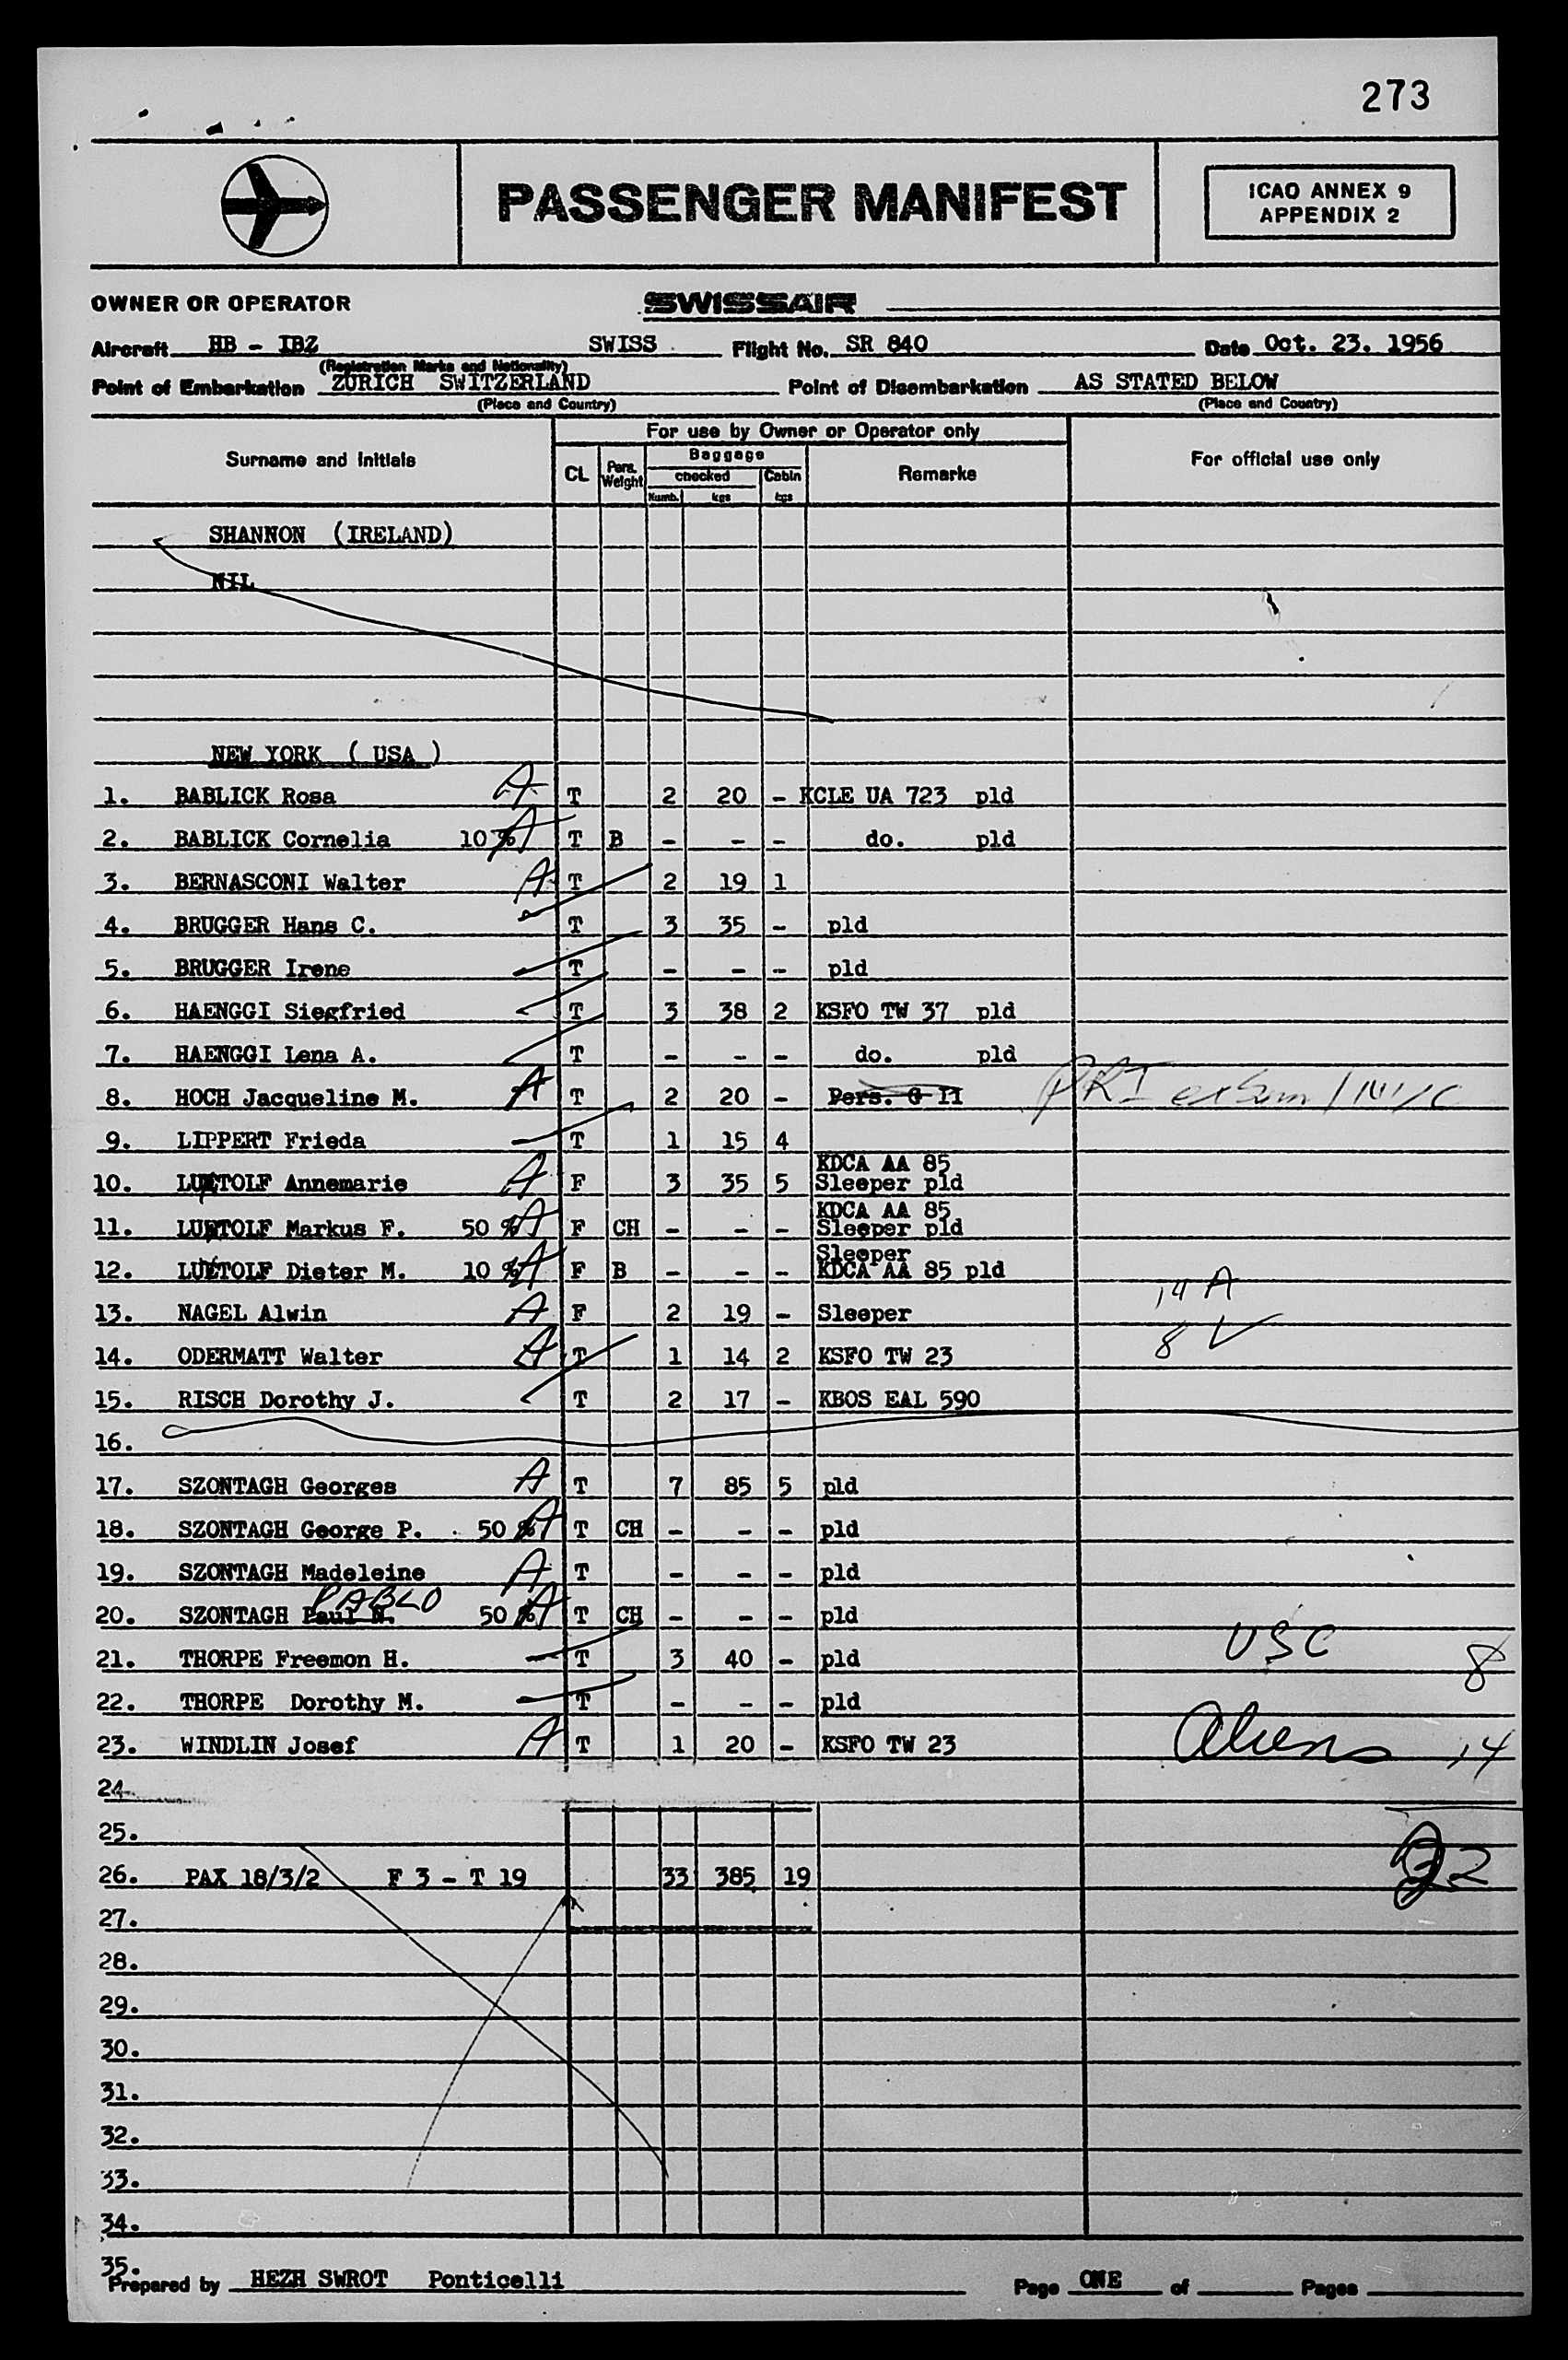 273
PASSENGER MANIFEST
ICAO ANNEX 9
APPENDIX 2
OWNER OR OPERATOR SWISSAIR
Aircraft HB - IBZ SWISS Flight No. SR 840 Date Oct. 23. 1956
(Registration Marks and Nationality)
Point of Embarkation ZURICH SWITZERLAND Point of Disembarkation AS STATED BELOW
(Place and Country) (Place and Country)
For use by Owner or Operator only
Surname and Initials CL Pers. Weight Baggage checked Numb. kgs Cabin kgs Remarks For official use only
SHANNON (IRELAND)
NIL
NEW YORK ( USA )
1. BABLICK Rosa A T 2 20 - KCLE UA 723 pld
2. BABLICK Cornelia 10 % A T B - - - do. pld
3. BERNASCONI Walter A T 2 19 1
4. BRUGGER Hans C. T 3 35 - pld
5. BRUGGER Irene T - - - pld
6. HAENGGI Siegfried T 3 38 2 KSFO TW 37 pld
7. HAENGGI Lena A. T - - - do. pld
8. HOCH Jacqueline M. A T 2 20 - Pers. G II
9. LIPPERT Frieda T 1 15 4
10. LUETOLF Annemarie A F 3 35 5 KDCA AA 85 Sleeper pld
11. LUETOLF Markus F. 50 % A F CH - - - KDCA AA 85 Sleeper pld
12. LUETOLF Dieter M. 10 % A F B - - - Sleeper KDCA AA 85 pld
14 A
13. NAGEL Alwin A F 2 19 - Sleeper
8 ✓
14. ODERMATT Walter A T 1 14 2 KSFO TW 23
15. RISCH Dorothy J. T 2 17 - KBOS EAL 590
16.
17. SZONTAGH Georges A T 7 85 5 pld
18. SZONTAGH George P. 50 % A T CH - - - pld
19. SZONTAGH Madeleine A T - - - pld
PABLO
20. SZONTAGH Paul N. 50 % A T CH - - - pld
21. THORPE Freemon H. T 3 40 - pld USC 8
22. THORPE Dorothy M. T - - - pld
23. WINDLIN Josef A T 1 20 - KSFO TW 23 Aliens 14
24.
25.
26. PAX 18/3/2 F 3 - T 19 33 385 19 22
27.
28.
29.
30.
31.
32.
33.
34.
35.
Prepared by HEZH SWROT Ponticelli Page ONE of Pages